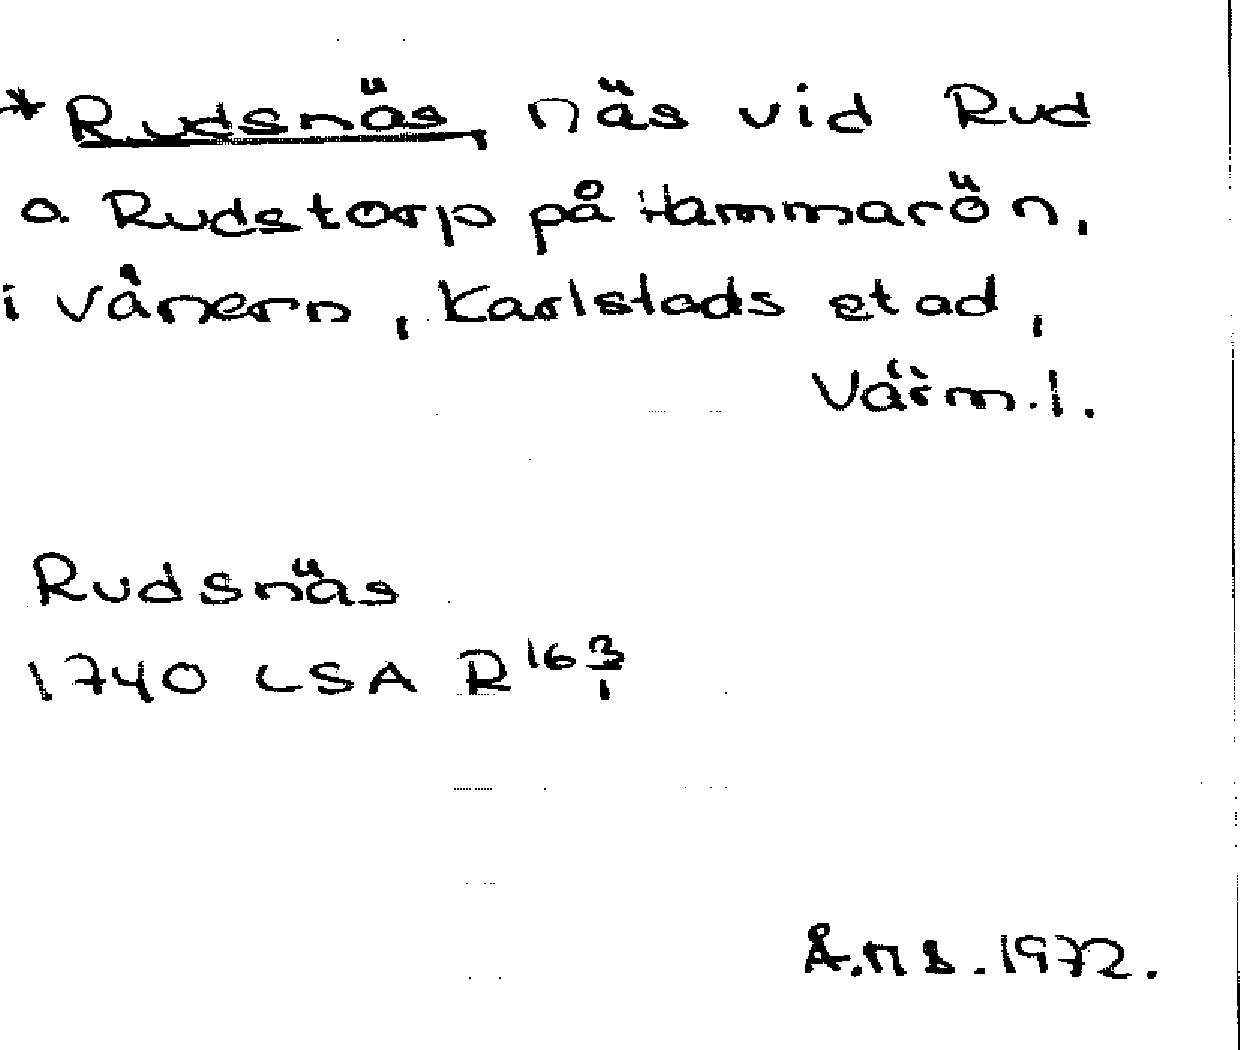 *Rudsnäs, näs vid Rud
o. Rudstorp på Hammarön,
i Vänern, Karlstads stad,
Värml.
Rudsnäs
1740 LSA R16 3/1
Å.H.S. 1972.